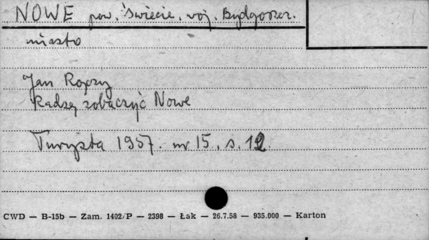 NOWE pow. Świecie, woj. Bydgoszcz.
miasto
Jan
Radzę zobaczyć Nowe
Turysta 1957. nr 15, s. 12
CWD — B-15b — Zam. 1402/P — 2398 — Łak — 26.7.58 — 935.000 — Karton